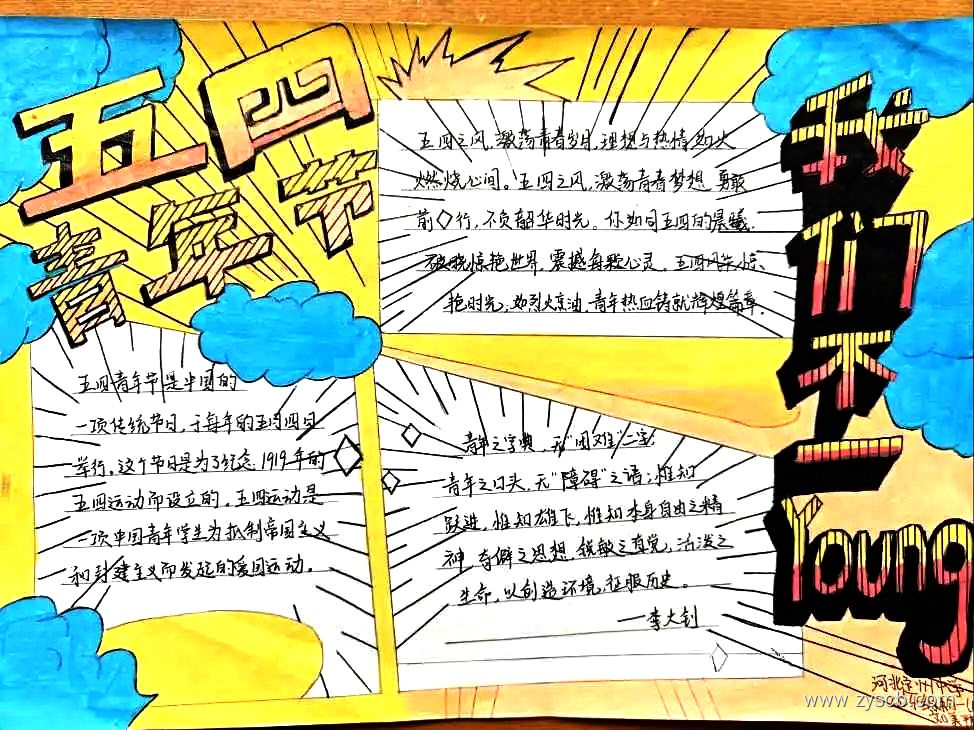 五四
青年节
五四之风,激荡青春岁月,理想与热情如火
燃烧心间。五四之风,激荡青春梦想,勇敢
前行,不负韶华时光。你如同五四的晨曦,
破晓惊艳世界,震撼每颗心灵。五四风华,惊
艳时光,如烈火烹油,青年热血铸就辉煌篇章。
我们不一
Young
五四青年节是中国的
一项传统节日,于每年的五月四日
举行,这个节日是为了纪念1919年的
五四运动而设立的。五四运动是
一项中国青年学生为抵制帝国主义
和封建主义而发起的爱国运动。
青年之字典,无“困难”二字,
青年之口头,无“障碍”之语;惟知
跃进,惟知雄飞,惟知本身自由之精
神,奇僻之思想,锐敏之直觉,活泼之
生命,以创造环境,征服历史。
——李大钊
河北定州中学
www.zyscb.com